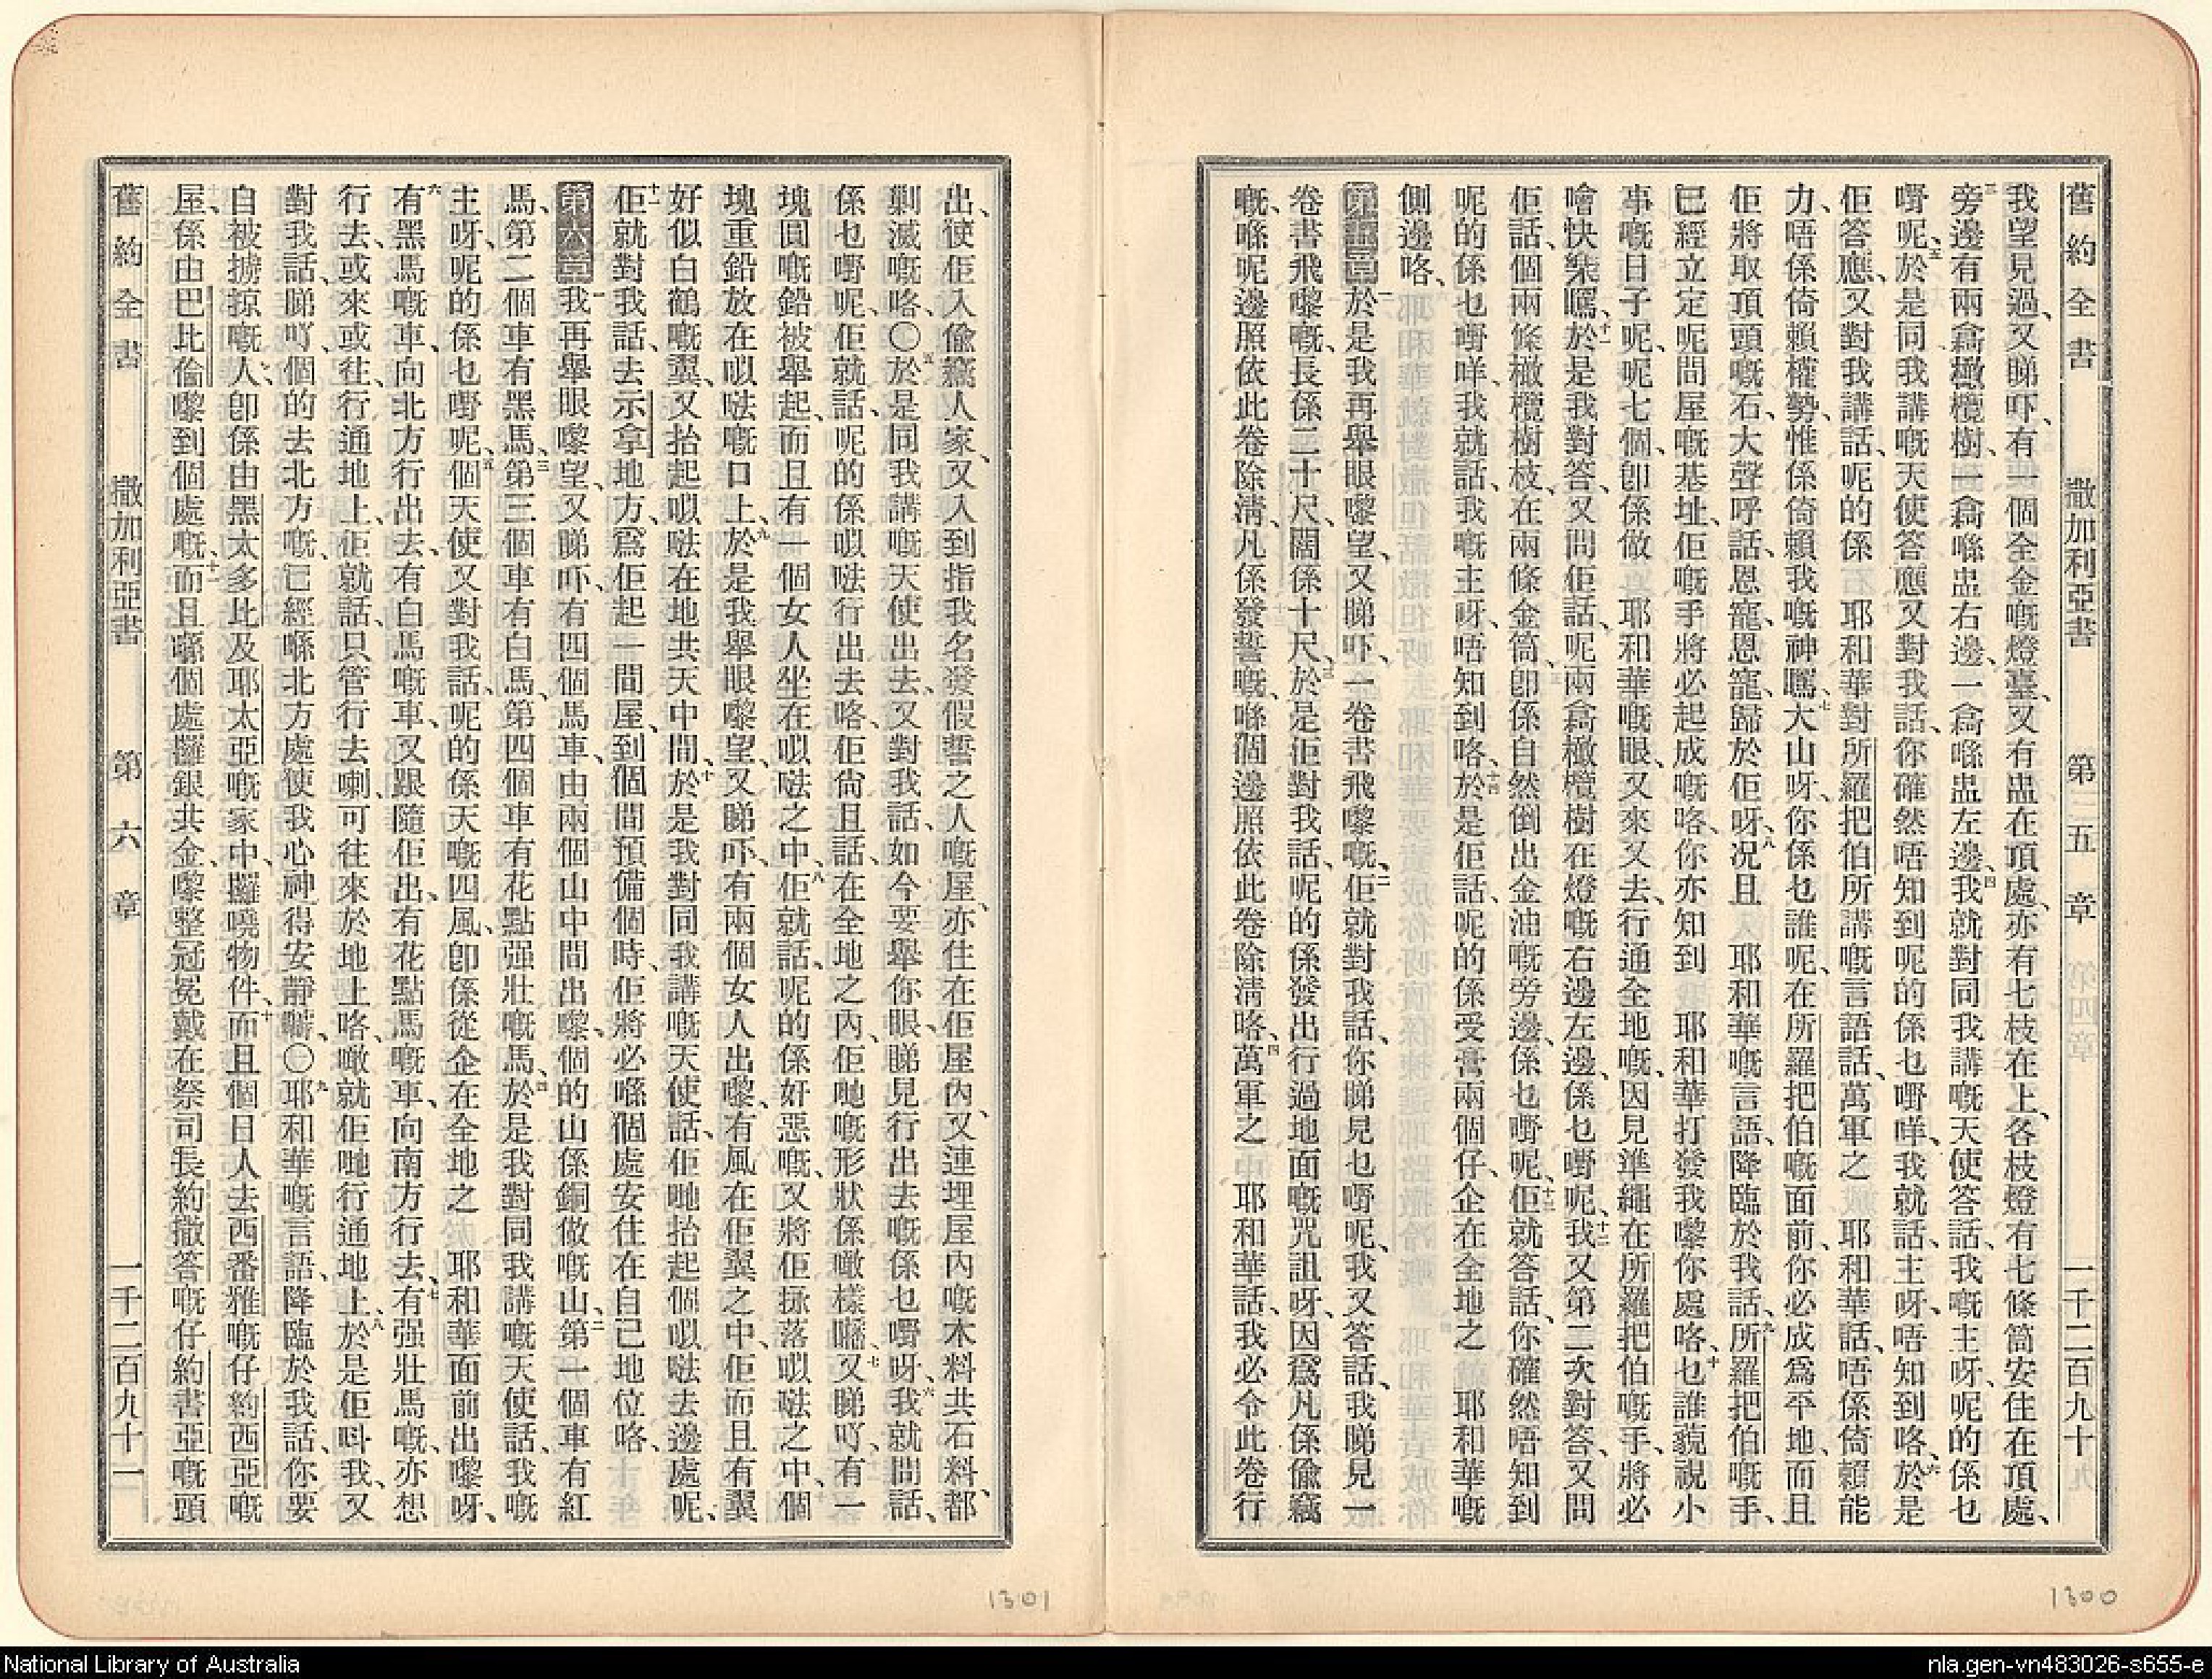 舊約全書 撒加利亞書 第五章 一千二百九十
我望見過、又睇吓、有一個全金嘅燈臺、又有盅在頂處、亦有七枝在上、各枝燈有七條筒安住在頂處、
三旁邊有兩裔橄欖樹、一裔喺盅右邊、一裔喺盅左邊、四我就對同我講嘅天使答話、我嘅主呀、呢的係乜
嘢呢、五於是同我講嘅天使答應又對我話、你確然唔知到呢的係乜嘢咩、我就話、主呀、唔知到咯、六於是
佢答應、又對我講話、呢的係 耶和華對所羅把伯所講嘅言語話、萬軍之 耶和華話、唔係倚賴能
力、唔係倚賴權勢、惟係倚賴我嘅神嚸、七大山呀、你係乜誰呢、在所羅把伯嘅面前、你必成爲平地、而且
佢將取頂頭嘅石、大聲呼話、恩寵恩寵、歸於佢呀、八况且 耶和華嘅言語、降臨於我話、九所羅把伯嘅手、
已經立定呢間屋嘅基址、佢嘅手將必起成嘅咯、你亦知到 耶和華打發我嚟你處咯、十乜誰藐視小
事嘅日子呢、呢七個、卽係做 耶和華嘅眼、又來又去、行通全地嘅、因見準繩在所羅把伯嘅手、將必
噲快樂嚸、十一於是我對答、又問佢話、呢兩裔橄欖樹在燈嘅右邊左邊、係乜嘢呢、十二我又第二次對答、又問
佢話、個兩條橄欖樹枝、在兩條金筒、卽係自然倒出金油嘅旁邊、係乜嘢呢、十三佢就答話、你確然唔知到
呢的係乜嘢咩、我就話、我嘅主呀、唔知到咯、十四於是佢話、呢的係受膏兩個仔、企在全地之 耶和華嘅
側邊咯、
第五章 一於是我再舉眼嚟望、又睇吓、一卷書飛嚟嘅、二佢就對我話、你睇見乜嘢呢、我又答話、我睇見一
卷書飛嚟嘅、長係二十尺、闊係十尺、三於是佢對我話、呢的係發出行過地面嘅咒詛呀、因爲凡係偷竊
嘅、喺呢邊照依此卷除淸、凡係發誓嘅、喺個邊照依此卷除淸咯、四萬軍之 耶和華話、我必令此卷行
1300
出、使佢入偷竊人家、又入到指我名發假誓之人嘅屋、亦住在佢屋內、又連埋屋內嘅木料共石料、都
剿滅嘅咯、〇五於是同我講嘅天使出去、又對我話、如今要舉你眼、睇見行出去嘅係乜嘢呀、六我就問話、
係乜嘢呢、佢就話、呢的係㕥㗎行出去咯、佢尙且話、在全地之內、佢哋嘅形狀係噉樣嚸、七又睇吖、有一
塊圓嘅鉛被舉起、而且有一個女人坐在㕥㗎之中、八佢就話、呢的係好惡嘅、又將佢㧒落㕥㗎之中、個
塊重鉛放在㕥㗎嘅口上、九於是我舉眼嚟望、又睇吓、有兩個女人出嚟、有風在佢翼之中、佢而且有翼
好似白鶴嘅翼、又抬起㕥㗎在地共天中間、十於是我對同我講嘅天使話、佢哋抬起個㕥㗎去邊處呢、
十一佢就對我話、去示拿地方、爲佢起一間屋、到個間預備個時、佢將必喺個處安住在自已地位咯、
第六章 一我再舉眼嚟望、又睇吓、有四個馬車、由兩個山中間出嚟、個的山係銅做嘅山、二第一個車有紅
馬、第二個車有黑馬、三第三個車有白馬、第四個車有花點强壯嘅馬、四於是我對同我講嘅天使話、我嘅
主呀、呢的係乜嘢呢、五個天使又對我話、呢的係天嘅四風、卽係從企在全地之 耶和華面前出嚟呀、
六有黑馬嘅車、向北方行出去、有白馬嘅車、又跟隨佢出、有花點馬嘅車、向南方行去、七有强壯馬嘅、亦想
行去、或來或往、行通地上、佢就話、只管行去喇、可往來於地上咯、噉就佢哋行通地上、八於是佢呌我、又
對我話、睇吖、個的去北方嘅、已經喺北方處使我心神得安靜嚸、〇九耶和華嘅言語、降臨於我話、你要
自被擄掠嘅人、卽係由黑太多比及耶太亞嘅家中、攞嘵物件、十而且個日人去西番雅嘅仔約西亞嘅
屋、係由巴比倫嚟到個處嘅、十一而且喺個處攞銀共金、嚟整冠冕、戴在祭司長約撒答嘅仔約書亞嘅頭
舊約全書 撒加利亞書 第六章 一千二百九十一
1301
National Library of Australia
nla.gen-vn483026-s655-e